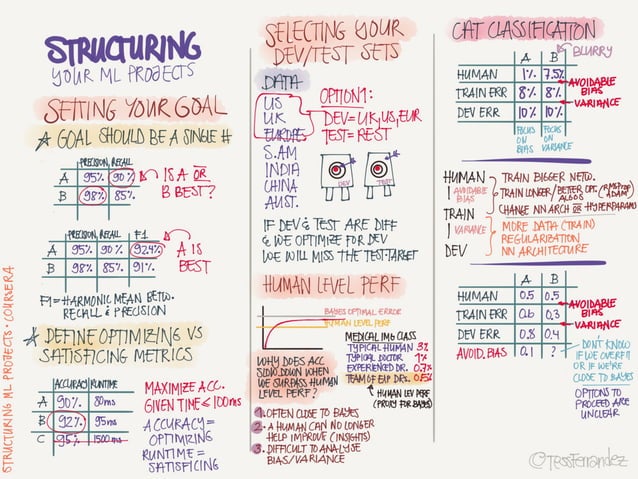 STRUCTURING
YOUR ML PROJECTS
SETTING YOUR GOAL
GOAL SHOULD BE A SINGLE #
PRECISION, RECALL
A 95% 90%
B 98% 85%
IS A OR
B BEST?
PRECISION, RECALL F1
A 95% 90% 92.4%
B 98% 85% 91%
A IS
BEST
F1 = HARMONIC MEAN BETW.
RECALL & PRECISION
DEFINE OPTIMIZING VS
SATISFICING METRICS
ACCURACY RUNTIME
A 90% 80ms
B 92% 95ms
C 95% 1500 ms
MAXIMIZE ACC.
GIVEN TIME ≤ 100ms
ACCURACY =
OPTIMIZING
RUNTIME =
SATISFICING
STRUCTURING ML PROJECTS • COURSERA
SELECTING YOUR
DEV/TEST SETS
DATA
US
UK
EUROPE
S.AM
INDIA
CHINA
AUST.
OPTION 1:
DEV = UK, US, EUR
TEST = REST
DEV
TEST
IF DEV & TEST ARE DIFF
& WE OPTIMIZE FOR DEV
WE WILL MISS THE TEST-TARGET
HUMAN LEVEL PERF
BAYES OPTIMAL ERROR
HUMAN LEVEL PERF
WHY DOES ACC
SLOW DOWN WHEN
WE SURPASS HUMAN
LEVEL PERF?
MEDICAL IMG CLASS
TYPICAL HUMAN 3%
TYPICAL DOCTOR 1%
EXPERIENCED DR. 0.7%
TEAM OF EXP DRS. 0.5%
HUMAN LEV PERF
(PROXY FOR BAYES)
1. OFTEN CLOSE TO BAYES
2. A HUMAN CAN NO LONGER
HELP IMPROVE (INSIGHTS)
3. DIFFICULT TO ANALYSE
BIAS/VARIANCE
CAT CLASSIFICATION
A B
BLURRY
HUMAN 1% 7.5%
TRAIN ERR 8% 8%
DEV ERR 10% 10%
AVOIDABLE
BIAS
VARIANCE
FOCUS
ON
BIAS
FOCUS
ON
VARIANCE
HUMAN
AVOIDABLE
BIAS
TRAIN
VARIANCE
DEV
TRAIN BIGGER NETW.
TRAIN LONGER/BETTER OPT. ALGOS (RMSPROP, ADAM)
CHANGE NN ARCH OR HYPERPARAMS
MORE DATA (TRAIN)
REGULARIZATION
NN ARCHITECTURE
A B
HUMAN 0.5 0.5
TRAIN ERR 0.6 0.3
DEV ERR 0.8 0.4
AVOID. BIAS 0.1 ?
AVOIDABLE
BIAS
VARIANCE
DON'T KNOW
IF WE OVERFIT
OR IF WE'RE
CLOSE TO BAYES
OPTIONS TO
PROCEED ARE
UNCLEAR
© TessFerrandez